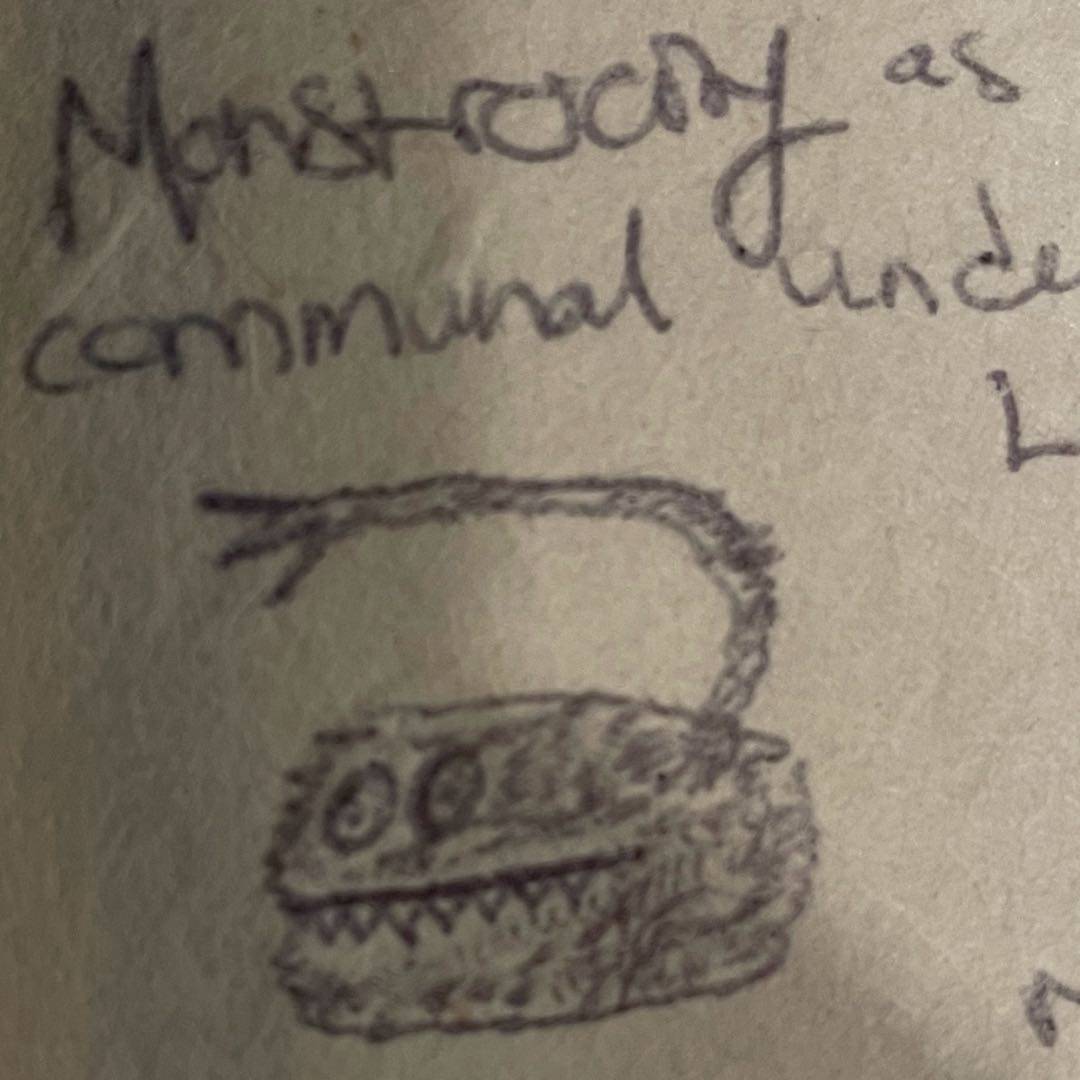 Monstrocity as
communal unde
L